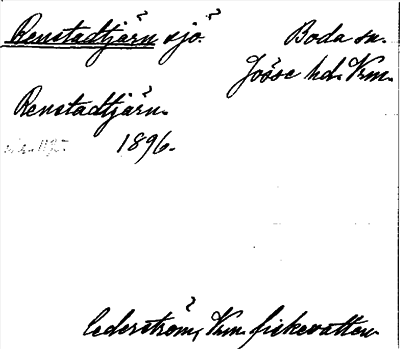 Renstadtjärn sjö.
Boda sn.
Jösse hd. Vrm.
Renstadtjärn.
1896.
Cederström, Vrm. fiskevatten